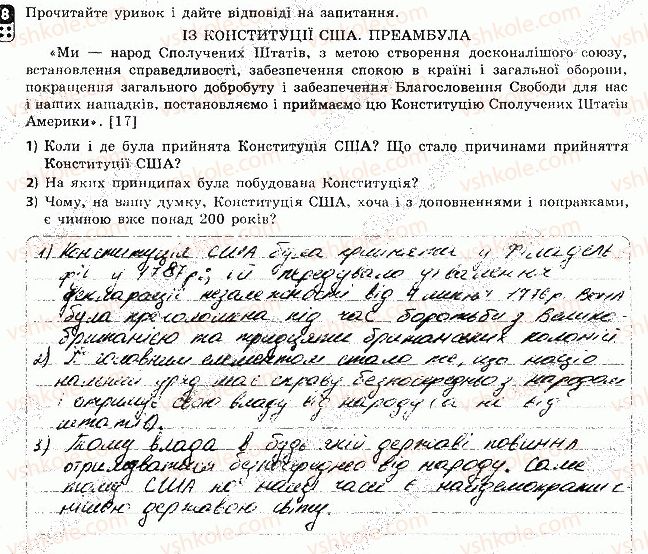 8
Прочитайте уривок і дайте відповіді на запитання.
ІЗ КОНСТИТУЦІЇ США. ПРЕАМБУЛА
«Ми — народ Сполучених Штатів, з метою створення досконалішого союзу,
встановлення справедливості, забезпечення спокою в країні і загальної оборони,
покращення загального добробуту і забезпечення Благословення Свободи для нас
і наших нащадків, постановляємо і приймаємо цю Конституцію Сполучених Штатів
Америки». [17]
1) Коли і де була прийнята Конституція США? Що стало причинами прийняття
Конституції США?
2) На яких принципах була побудована Конституція?
3) Чому, на вашу думку, Конституція США, хоча і з доповненнями і поправками,
є чинною вже понад 200 років?
1) Конституція США була прийнята у Філадель
фії у 1787 р., їй передувало ухвалення
декларації незалежності від 4 липня 1776 р. Вона
була проголошена під час боротьби з Велико-
британією та тридцяти британських колоній
2) Її головним елементом стало те, що націо
нальний уряд має справу безпосередньо з народом
і отримує свою владу від народу, а не від
штатів.
3) Тому влада в будь якій державі повинна
отримуватися безпосередньо від народу. Саме
тому США по наші часи є найдемократич
нішою державою світу.
vshkole.com